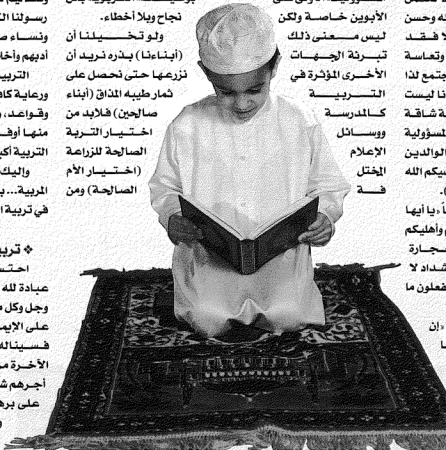 وحسن
وتعاسة
لا فقد
لذا
ليست
شاقة
الوالدين
الله
«يا أيها
وأهليكم
شداد لا
ما
«إن
الأبوين خاصة ولكن
ليس معنى ذلك
تبرئة الجهات
الأخرى المؤثرة في
التربية
كالمدرسة
ووسائل
الإعلام
المختل
فة
نجاح وبلا أخطاء.
ولو تخيلنا أن
(أبناءنا) بذره نريد أن
نزرعها حتى نحصل على
ثمار طيبه المذاق (أبناء
صالحين) فلابد من
اختيار التربة
الصالحة للزراعة
(اختيار الأم
الصالحة) ومن
رسولنا ا
ونساء ص
أدبهم وأخا
التربي
ورعاية كاف
وقواعد، و
منها أوف
التربية أكب
واليك
المربية... ب
في تربية ا
❖ تربي
احتس
عبادة لله
وجل وكل م
على الإيم
فسيناله
الآخرة م
أجرهم ش
على بره